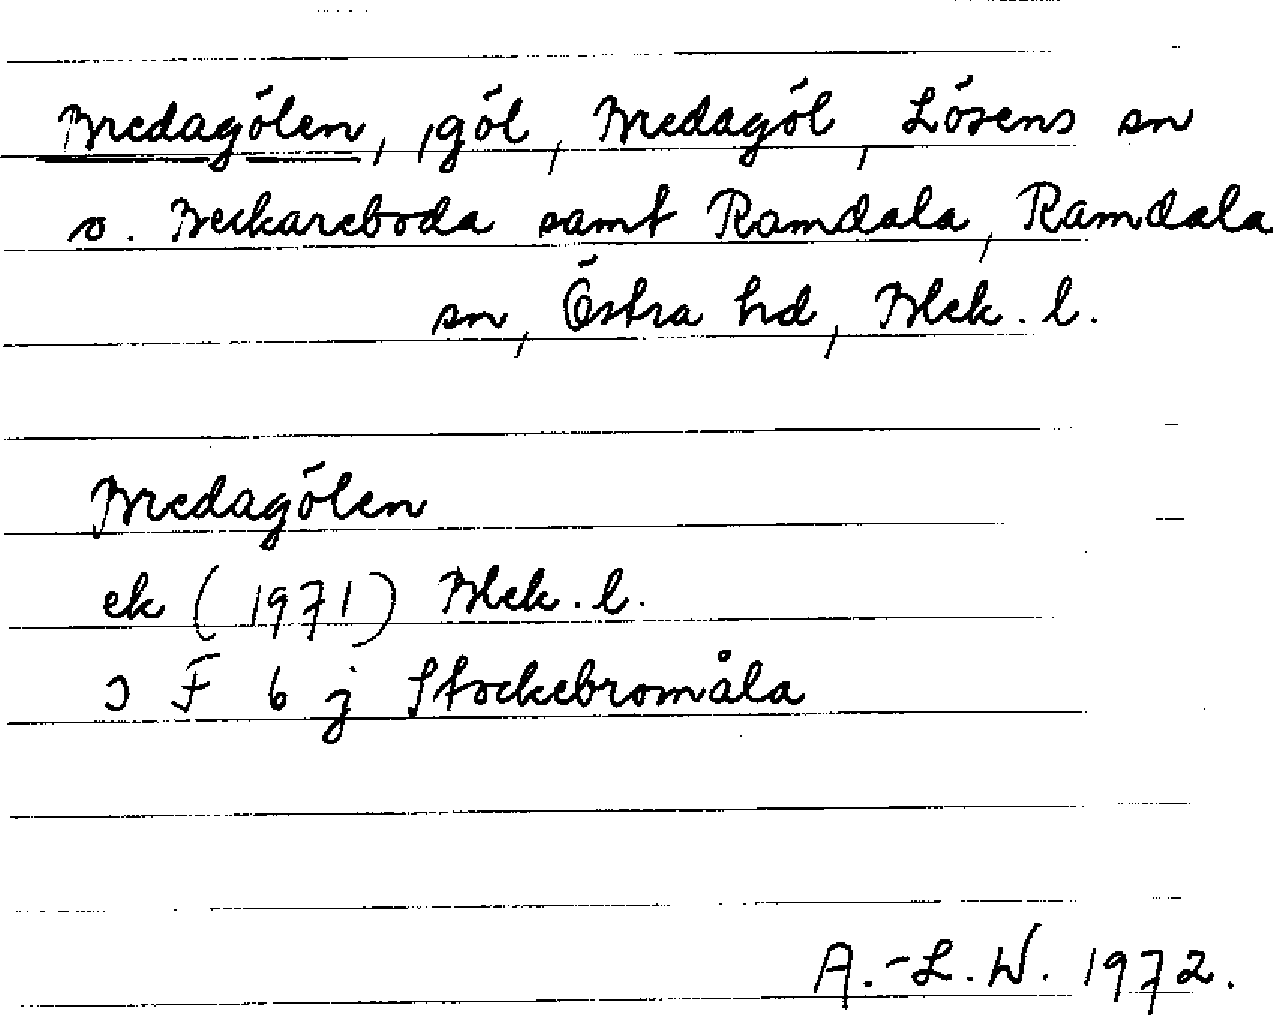 Bredagölen, göl, Bredagöl, Lösens sn
o. Beckareboda samt Ramdala, Ramdala
sn, Östra hd, Blek. l.
Bredagölen
ek (1971) Blek. l.
3 F 6 j Stockebromåla
A.-L. W. 1972.